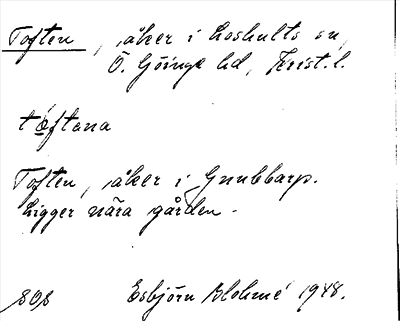 Toften, åker i Loshults sn,
Ö. Göinge hd, Krist. l.
tɵftana
Toften, åker i Gnubbarp.
Ligger nära gården.
Esbjörn Blohmé 1948.